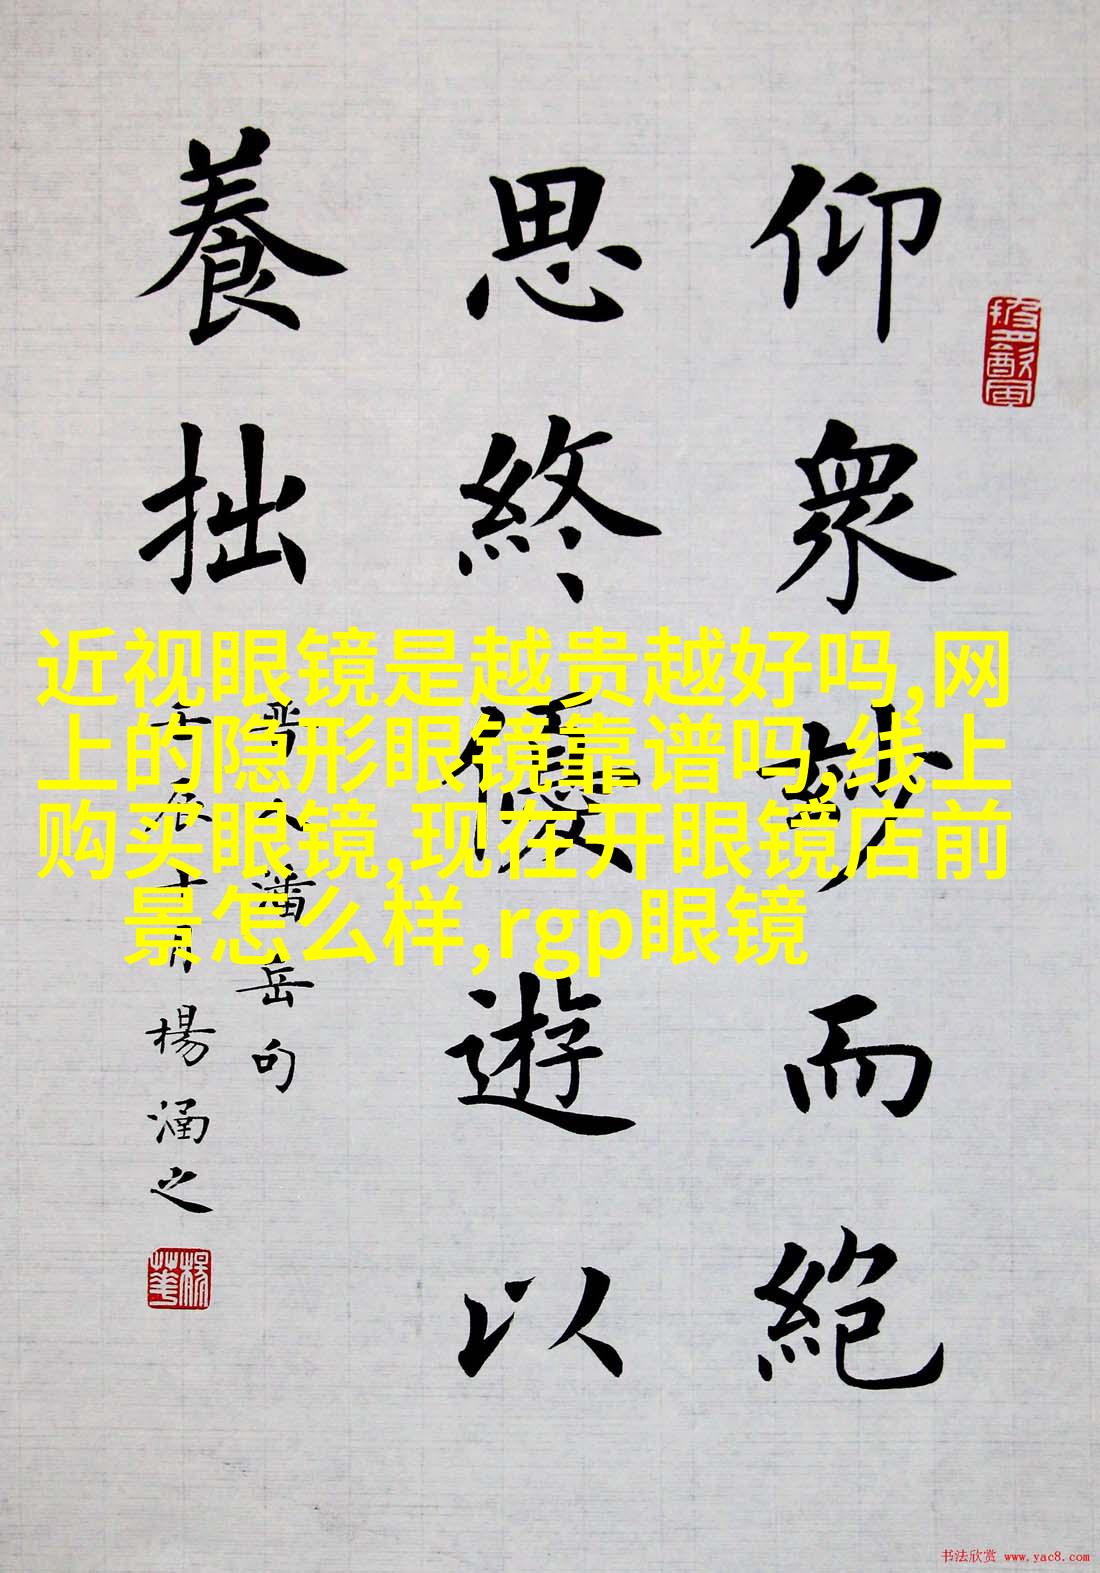 仰衆妙而絶
思終優遊以
養拙
晉人潘岳句
壬辰十月楊涵之
近视眼镜是越贵越好吗,网
上的隐形眼镜靠谱吗,线上
购买眼镜,现在开眼镜店前
景怎么样,rgp眼镜
书法欣赏 www.yac8.com